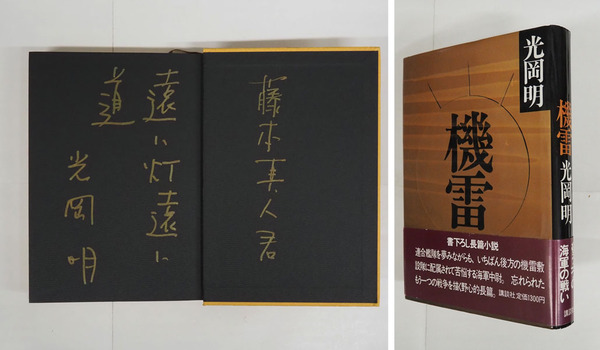 藤本真人君
遠い灯遠い
道
光岡明
光岡明
機雷
書下ろし長篇小説
連合艦隊を夢みながらも、いちばん後方の機雷敷
設隊に配属されて苦悩する海軍中尉。忘れられた
もう一つの戦争を描く野心的長篇。講談社/定価1300円
機雷 光岡明
海軍の戦い
講談社